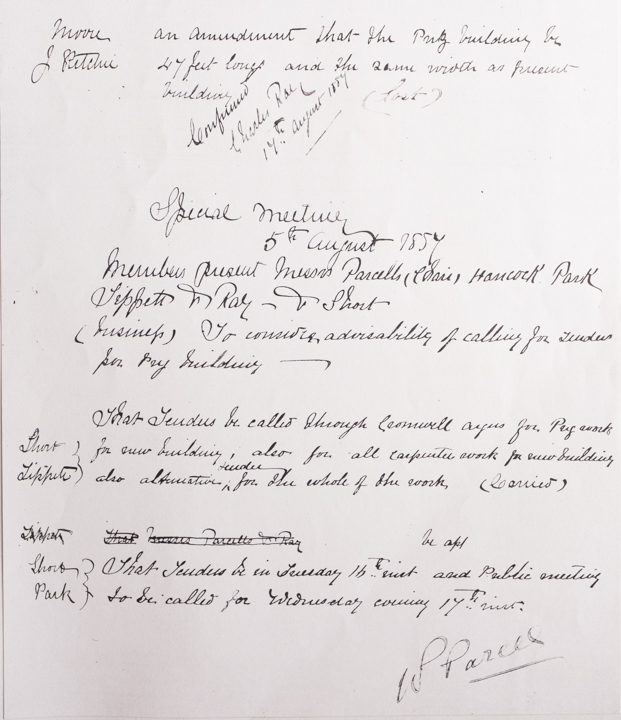 Moore an amendment that the Prty building be
J Ritchie 47 feet long and the same width as present
building (Lost)
Confirmed
Charles Ray
17th August 1887
Special Meeting
5th August 1887
Members present Messrs Parcells, (Chair), Hancock Park
Tippett & Ray – & Short
(Business) To consider advisability of calling for Tenders
for Prg building —
That Tenders be called through Cromwell Argus for Pug work
Short ) for new building, also for all carpenter work for new building
Tippett ) also alternative, tender for the whole of the work (Carried)
Tippett That Messrs Parcells & Ray be apt
Short ) That Tenders be in Tuesday 16th inst and Public meeting
Park ) to be called for Wednesday evening 17th inst.
W Parcell